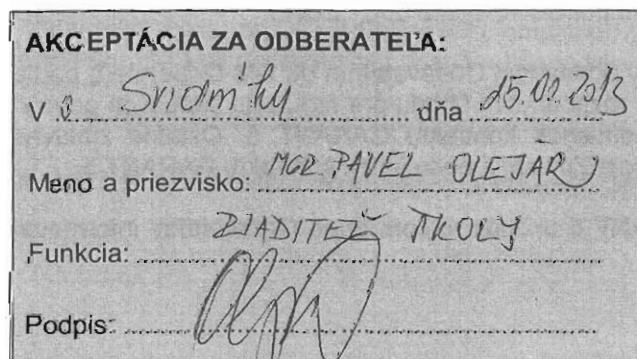 AKCEPTÁCIA ZA ODBERATEĽA:
V Svidníku dňa 15.01.2013
Meno a priezvisko: MGR. PAVEL OLEJÁR
Funkcia: RIADITEĽ ŠKOLY
Podpis: